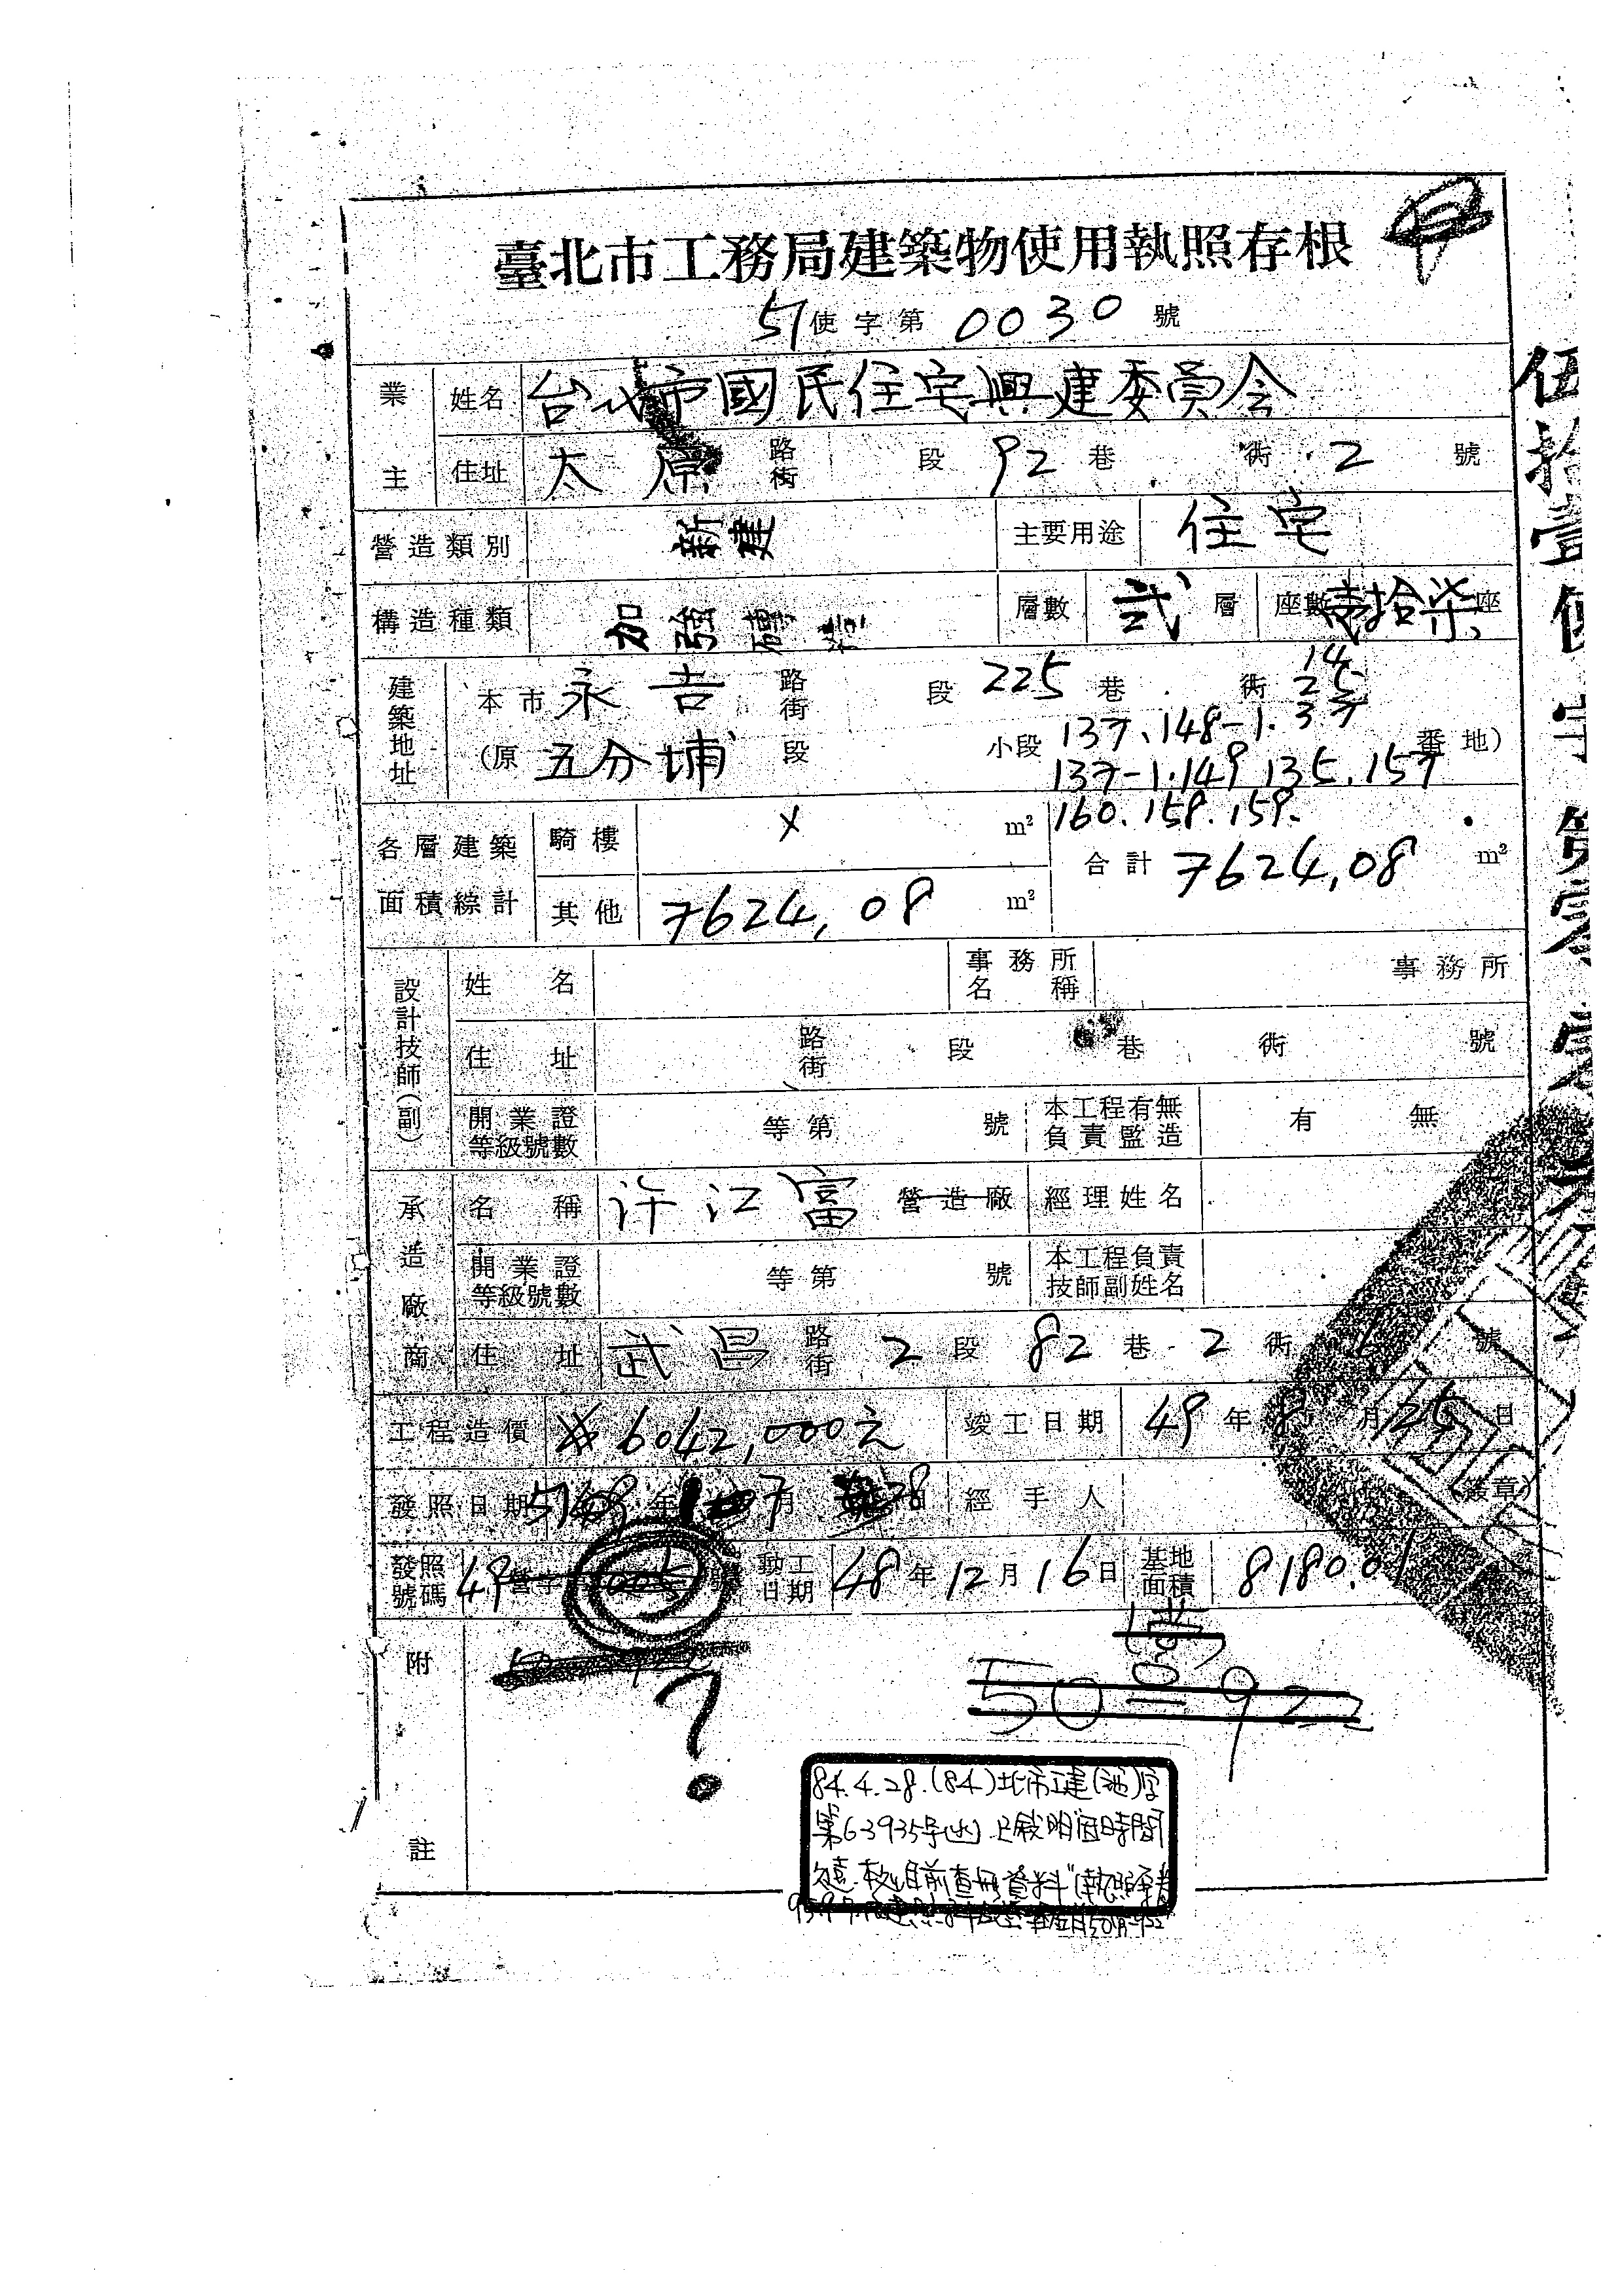 臺北市工務局建築物使用執照存根
51使字第0030號
業主 姓名 台北市國民住宅興建委員会
住址 太原 路街 段 92 巷 衖 2 號
營造類別 新建 主要用途 住宅
構造種類 加強磚造 層數 弍 層 座數 壹拾柒 座
14
建築地址 本市 永吉 路街 段 225 巷 衖 25
37
(原 五分埔 段 小段 137、148-1. 番地)
137-1.149 135.157
160.158.159.
各層建築面積綜計 騎樓 X m² 合計 7624,08 m²
其他 7624,08 m²
設計技師(副) 姓名 事務所名稱 事務所
住址 路街 段 巷 衖 號
開業證等級號數 等第 號 本工程有無負責監造 有 無
承造廠商 名稱 许江富 營造廠 經理姓名
開業證等級號數 等第 號 本工程負責技師副姓名
住址 武昌 路街 2 段 82 巷 2 衖 號
工程造價 6042,000元 竣工日期 49年8月25日
發照日期 51 年 7 月 28 日 經手人 (簽章)
發照號碼 49營字 號 動工日期 48年12月16日 基地面積 8180.01
附註
?
50 922
84.4.28.(84)北市工建(池)字
第63935号
伍拾壹使字第零零